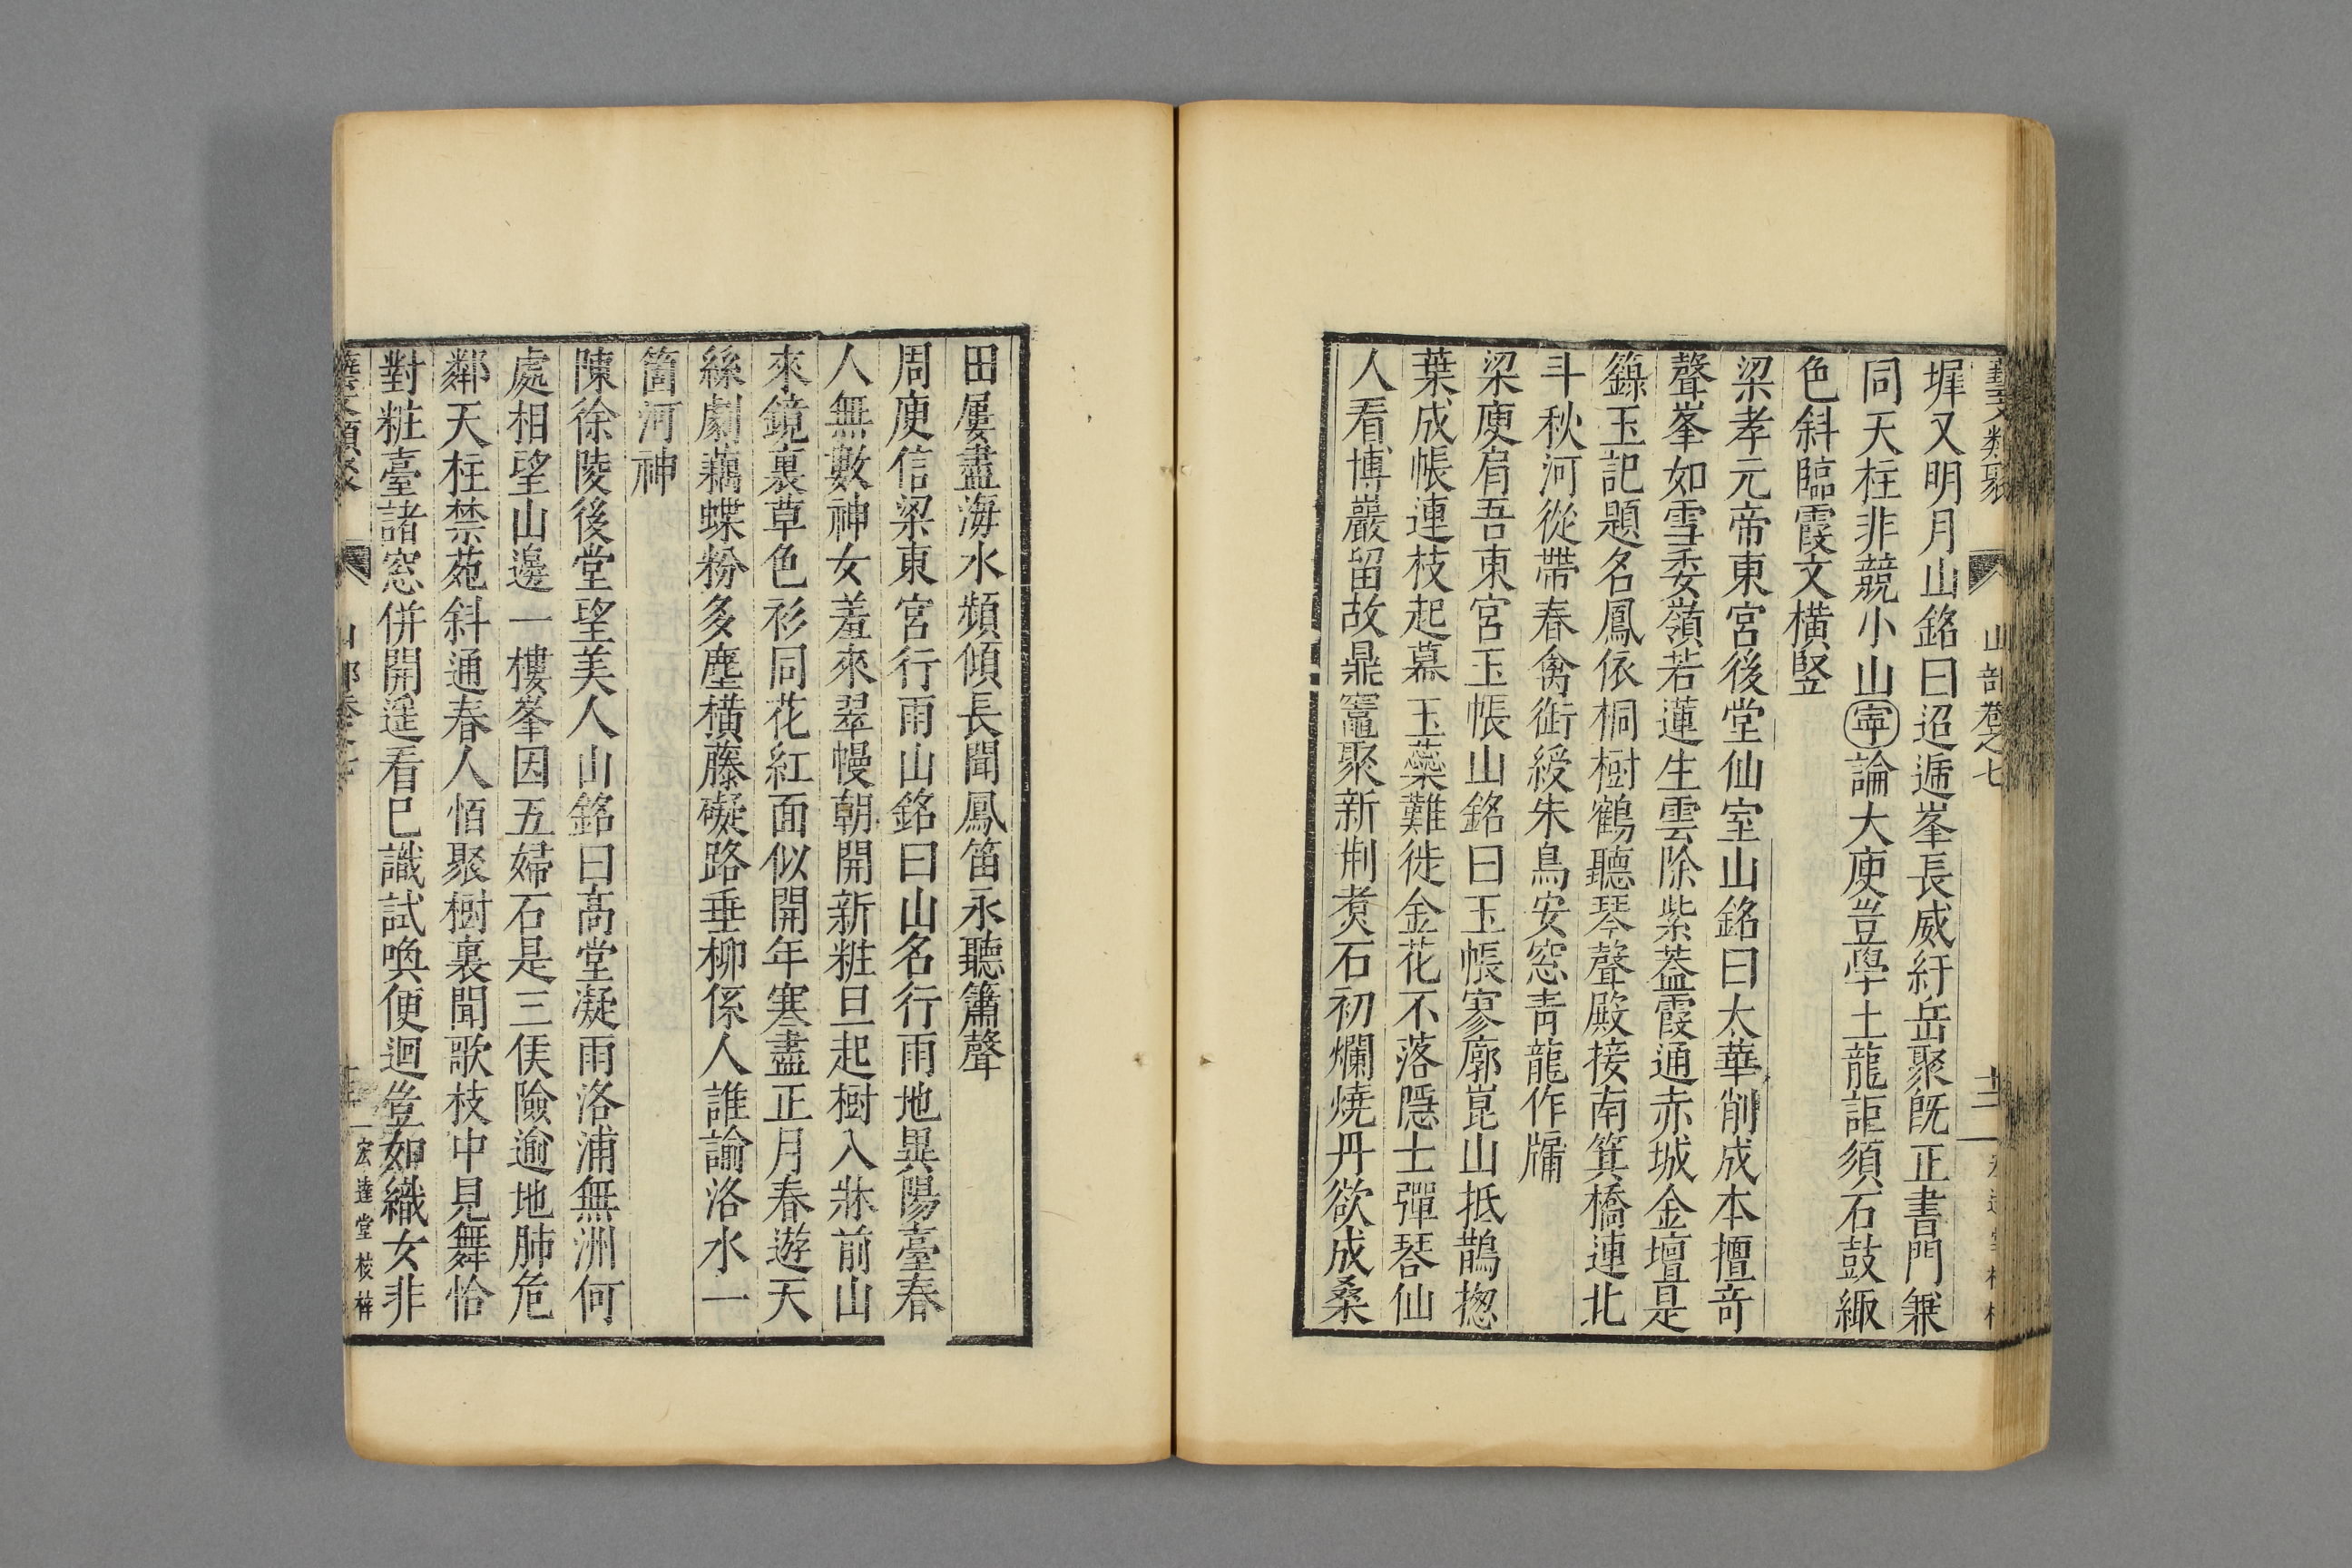 藝文類聚 山部卷之七 十二
墀又明月山銘曰迢遞峯長威紆岳聚旣正書門兼
同天柱非競小山寧論大庾豈學土龍詎須石鼓緅
色斜臨霞文橫竪
梁孝元帝東宮後堂仙室山銘曰太華削成本擅竒
聲峯如雪委嶺若蓮生雲除紫蓋霞通赤城金壇是
籙玉記題名鳳依桐樹鶴聽琴聲殿接南箕橋連北
斗秋河從帶春禽銜綬朱鳥安窓靑龍作牖
梁庾肩吾東宮玉帳山銘曰玉帳寥廓崑山抵鵲揔
葉成帳連枝起幕玉蘂難徙金花不落隱士彈琴仙
人看博巖留故鼎竈聚新荆煑石初爛燒丹欲成桑
田屢盡海水頻傾長聞鳳笛永聽簫聲
周庾信梁東宮行雨山銘曰山名行雨地異陽臺春
人無數神女羞來翠幔朝開新粧旦起樹入牀前山
來鏡裏草色衫同花紅面似開年寒盡正月春遊天
絲劇藕蝶粉多塵橫藤礙路垂柳係人誰諭洛水一
箇河神
陳徐陵後堂望美人山銘曰高堂凝雨洛浦無洲何
處相望山邊一樓峯因五婦石是三侯險逾地肺危
鄰天柱禁苑斜通春人恒聚樹裏聞歌枝中見舞恰
對粧臺諸窓併開遥看已識試喚便迴豈如織女非
藝文類聚 山部卷之七 宏達堂校梓